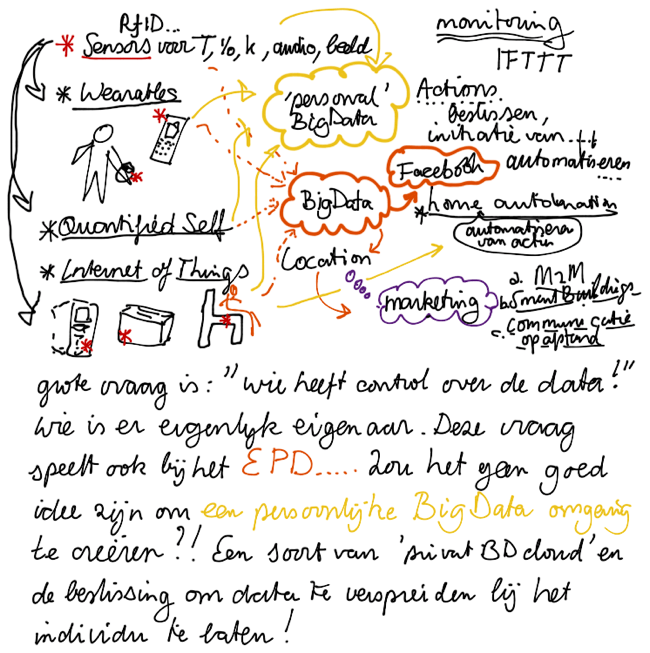 RfID...
* Sensors voor T, %, k, audio, beeld
monitoring
IFTTT
* Wearables
'personal'
BigData
Actions
beslissen,
initiatie van....
automatiseren
....
Facebook
BigData
* home automation
automatisera
van actin
* Quantified Self
* Internet of Things
Location
marketing
a. M2M
b. Smart Buildings
c. Communicatie
op afstand
grote vraag is: "wie heeft control over de data!"
Wie is er eigenlijk eigenaar. Deze vraag
speelt ook bij het EPD..... Zou het geen goed
idee zijn om een persoonlijke BigData omgeving
te creëren?! Een soort van 'privat BD cloud' en
de beslissing om data te verspreiden bij het
individu te laten!